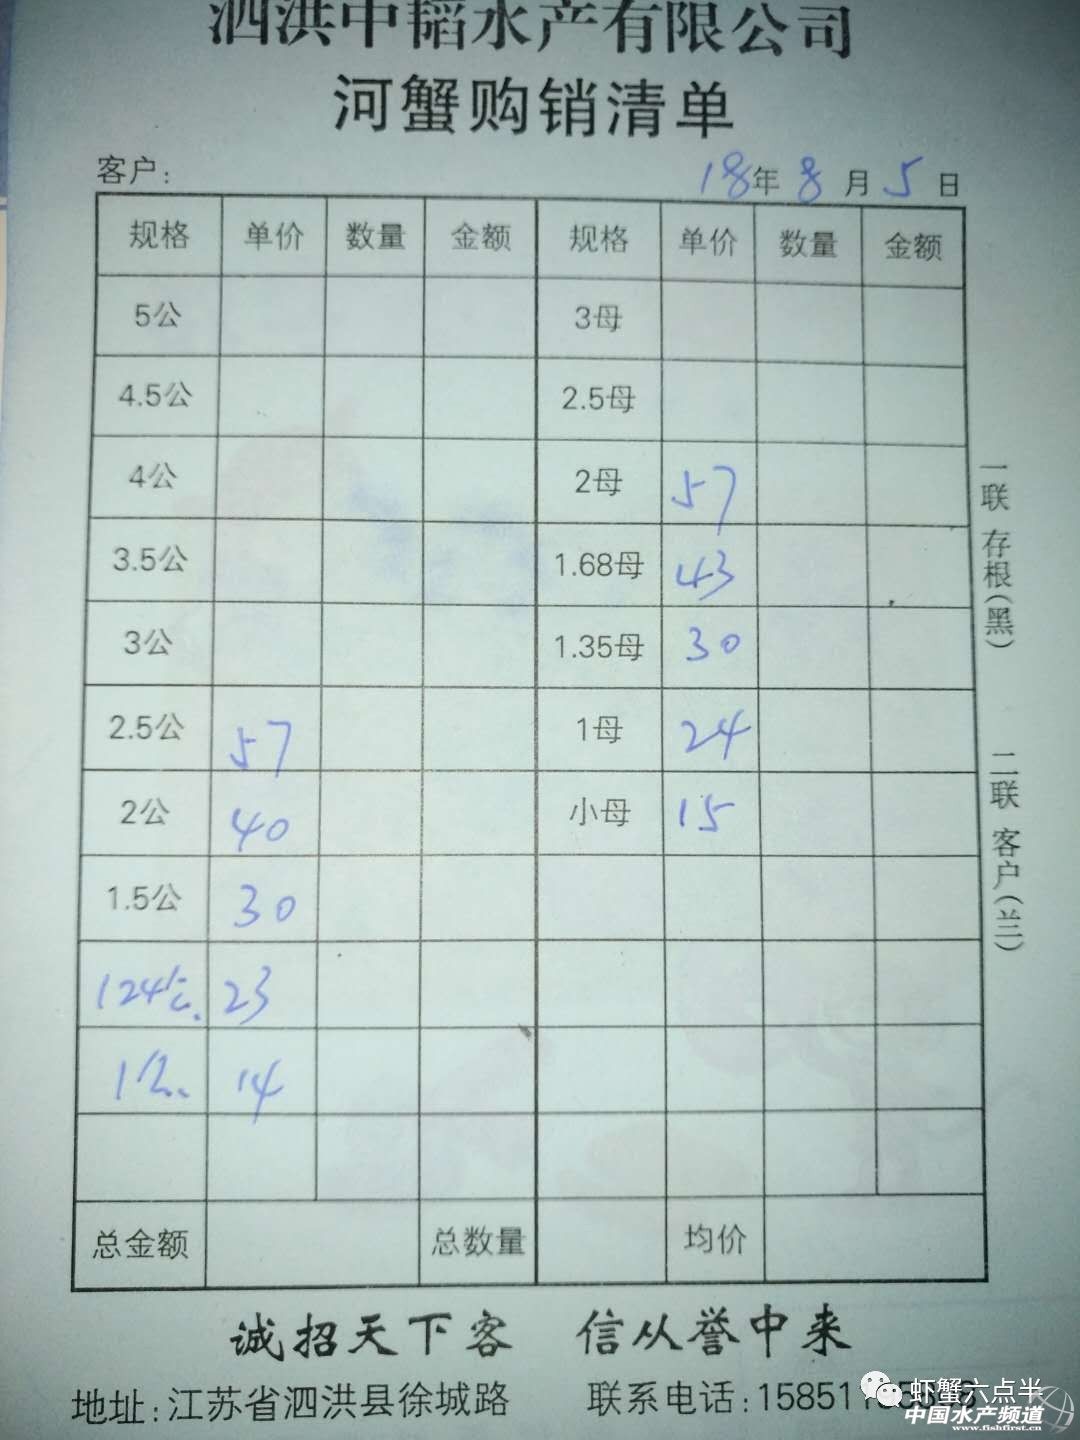 泗洪中韬水产有限公司
河蟹购销清单
客户: 18年 8月 5日
规格 单价 数量 金额 规格 单价 数量 金额
5公 3母
4.5公 2.5母
4公 2母 57
3.5公 1.68母 43
3公 1.35母 30
2.5公 57 1母 24
2公 40 小母 15
1.5公 30
124 23
14
总金额 总数量 均价
一联 存根(黑)
二联 客户(兰)
诚招天下客 信从誉中来
地址:江苏省泗洪县徐城路 联系电话:15851
虾蟹六点半
中国水产频道
www.fishfirst.cn